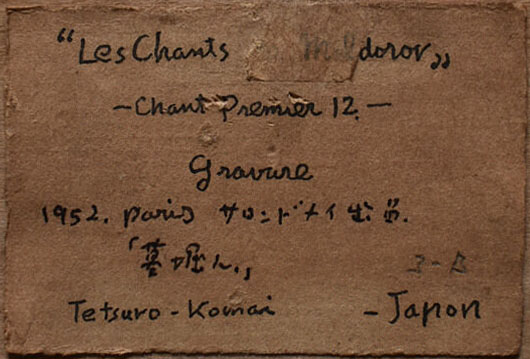 “Les Chants doror„
—Chant Premier 12.—
Gravure
1952. Paris サロンドメイ出品.
「墓堀人.」
3-B
Tetsuro-Komai —Japon